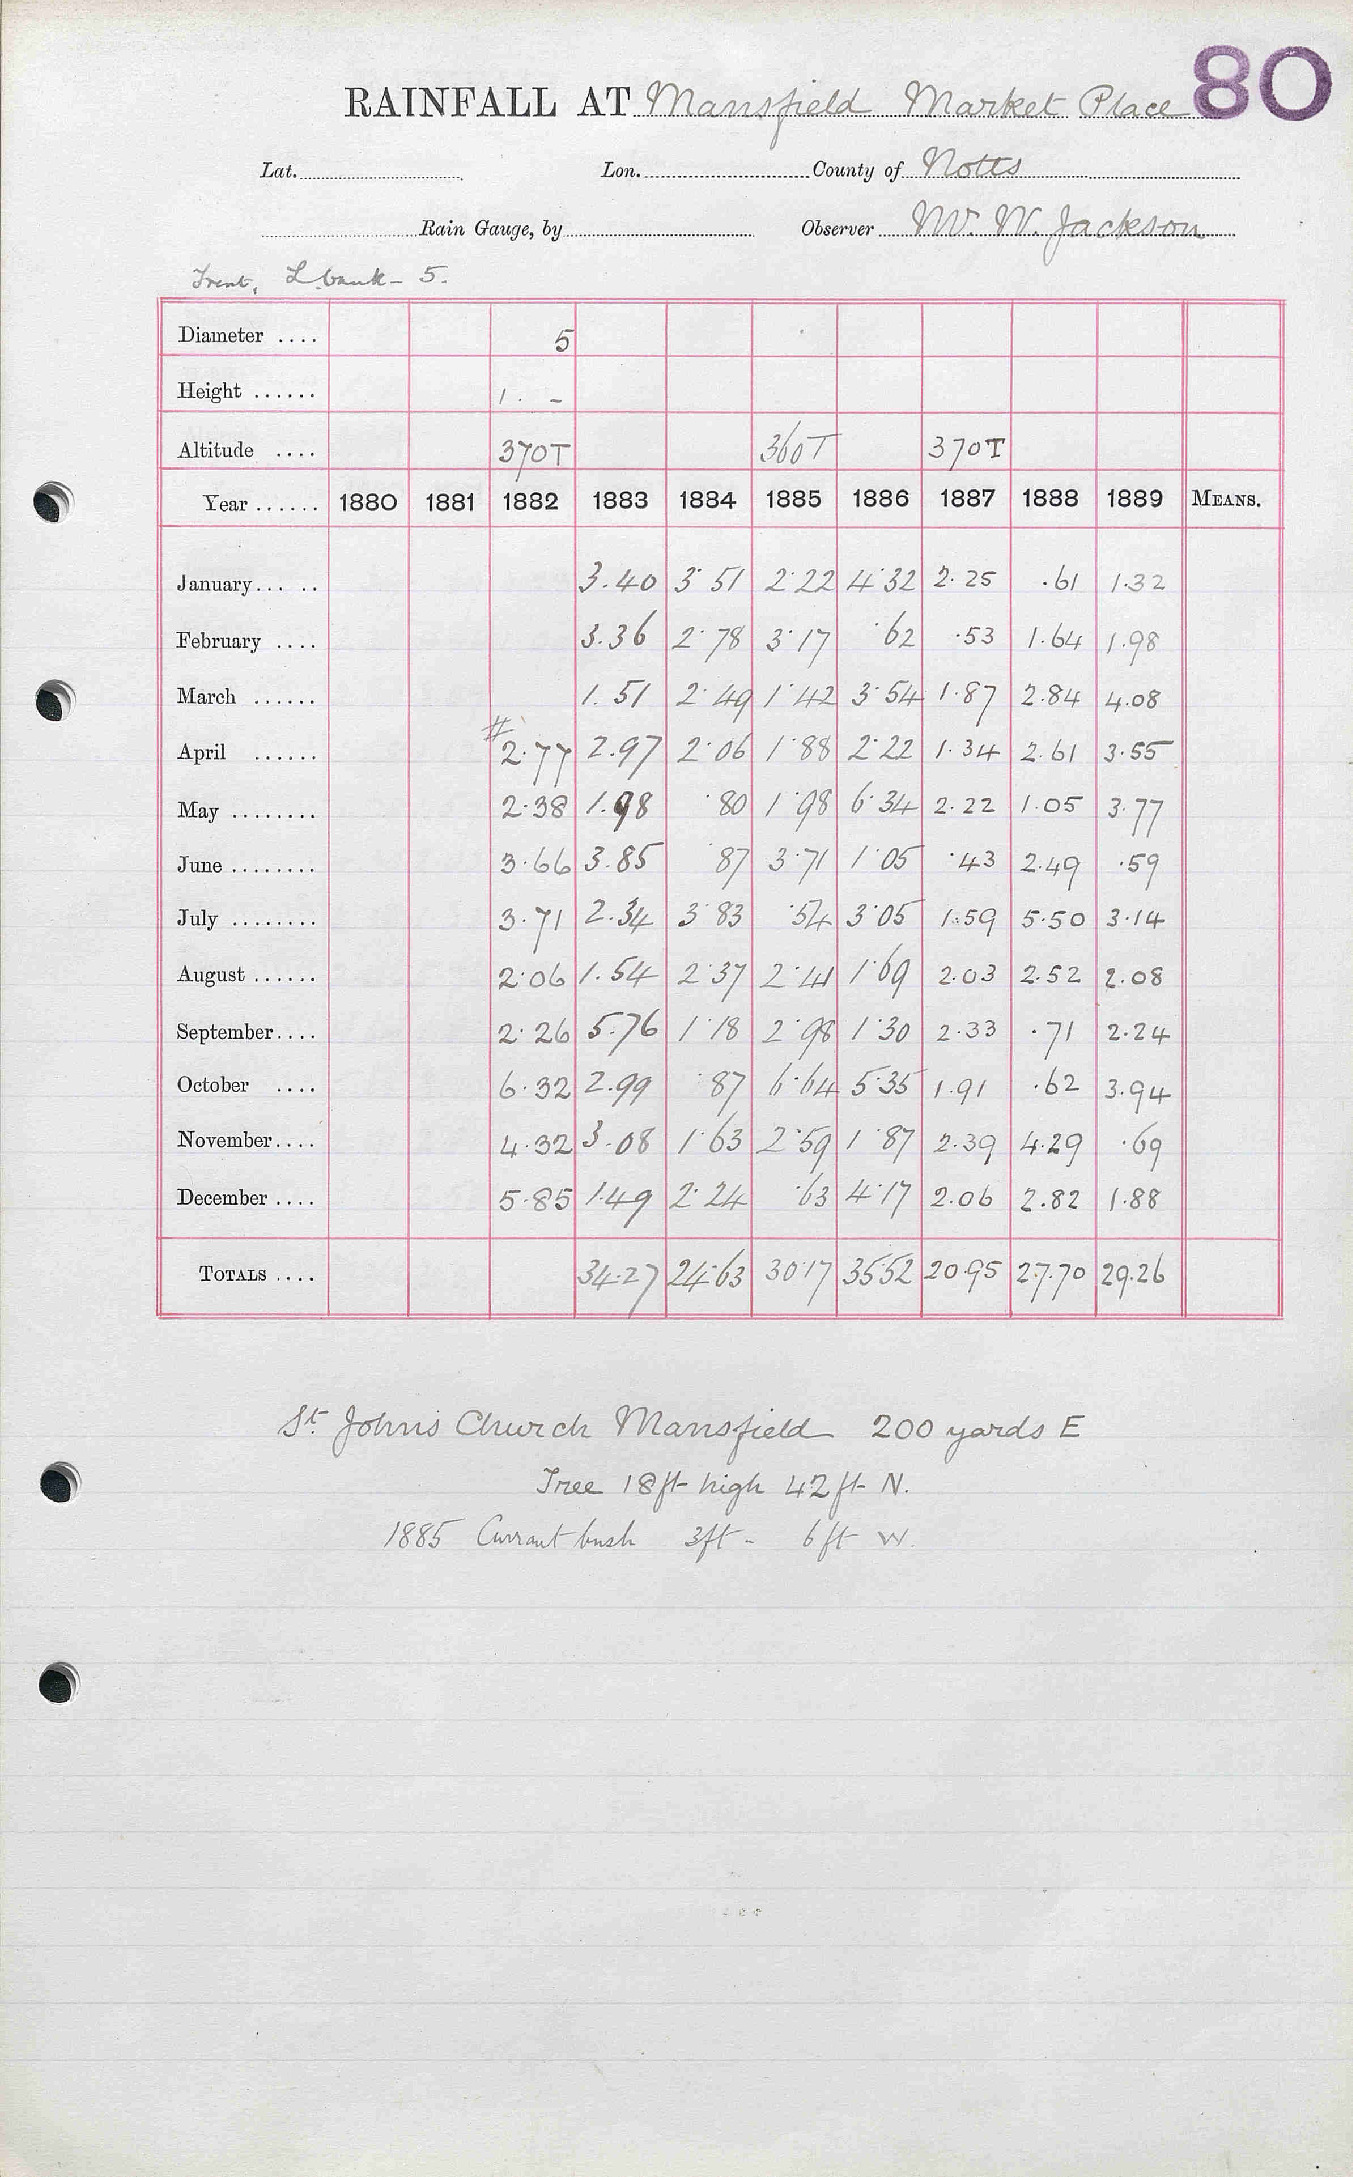 80
RAINFALL AT Mansfield Market Place
Lat. Lon. County of Notts
Rain Gauge, by Observer W. W. Jackson
Trent, L bank - 5.
Diameter .... 5
Height ...... 1. -
Altitude .... 370T 360T 370T
Year ...... 1880 1881 1882 1883 1884 1885 1886 1887 1888 1889 MEANS.
January... .. 3.40 3·51 2·22 4·32 2.25 .61 1.32
February .... 3.36 2·78 3·17 ·62 ·53 1.64 1.98
March ...... 1.51 2·49 1·42 3·54 1.87 2.84 4.08
April ...... # 2.77 2.97 2·06 1·88 2·22 1.34 2.61 3.55
May ........ 2·38 1.98 ·80 1·98 6·34 2.22 1.05 3.77
June ........ 3·66 3.85 ·87 3·71 1·05 ·43 2.49 ·59
July ........ 3·71 2.34 3·83 ·54 3·05 1.59 5.50 3·14
August ...... 2·06 1.54 2·37 2·41 1·69 2.03 2.52 2.08
September.... 2·26 5.76 1·18 2·98 1·30 2.33 .71 2.24
October .... 6·32 2.99 ·87 6·64 5·35 1.91 .62 3.94
November.... 4.32 3.08 1·63 2·59 1·87 2.39 4.29 ·69
December .... 5·85 1.49 2·24 ·63 4·17 2.06 2.82 1.88
TOTALS .... 34.27 24·63 30·17 35·52 20.95 27.70 29.26
St. John's Church Mansfield 200 yards E
Tree 18ft high 42ft N.
1885 Currant bush 3ft - 6ft W.